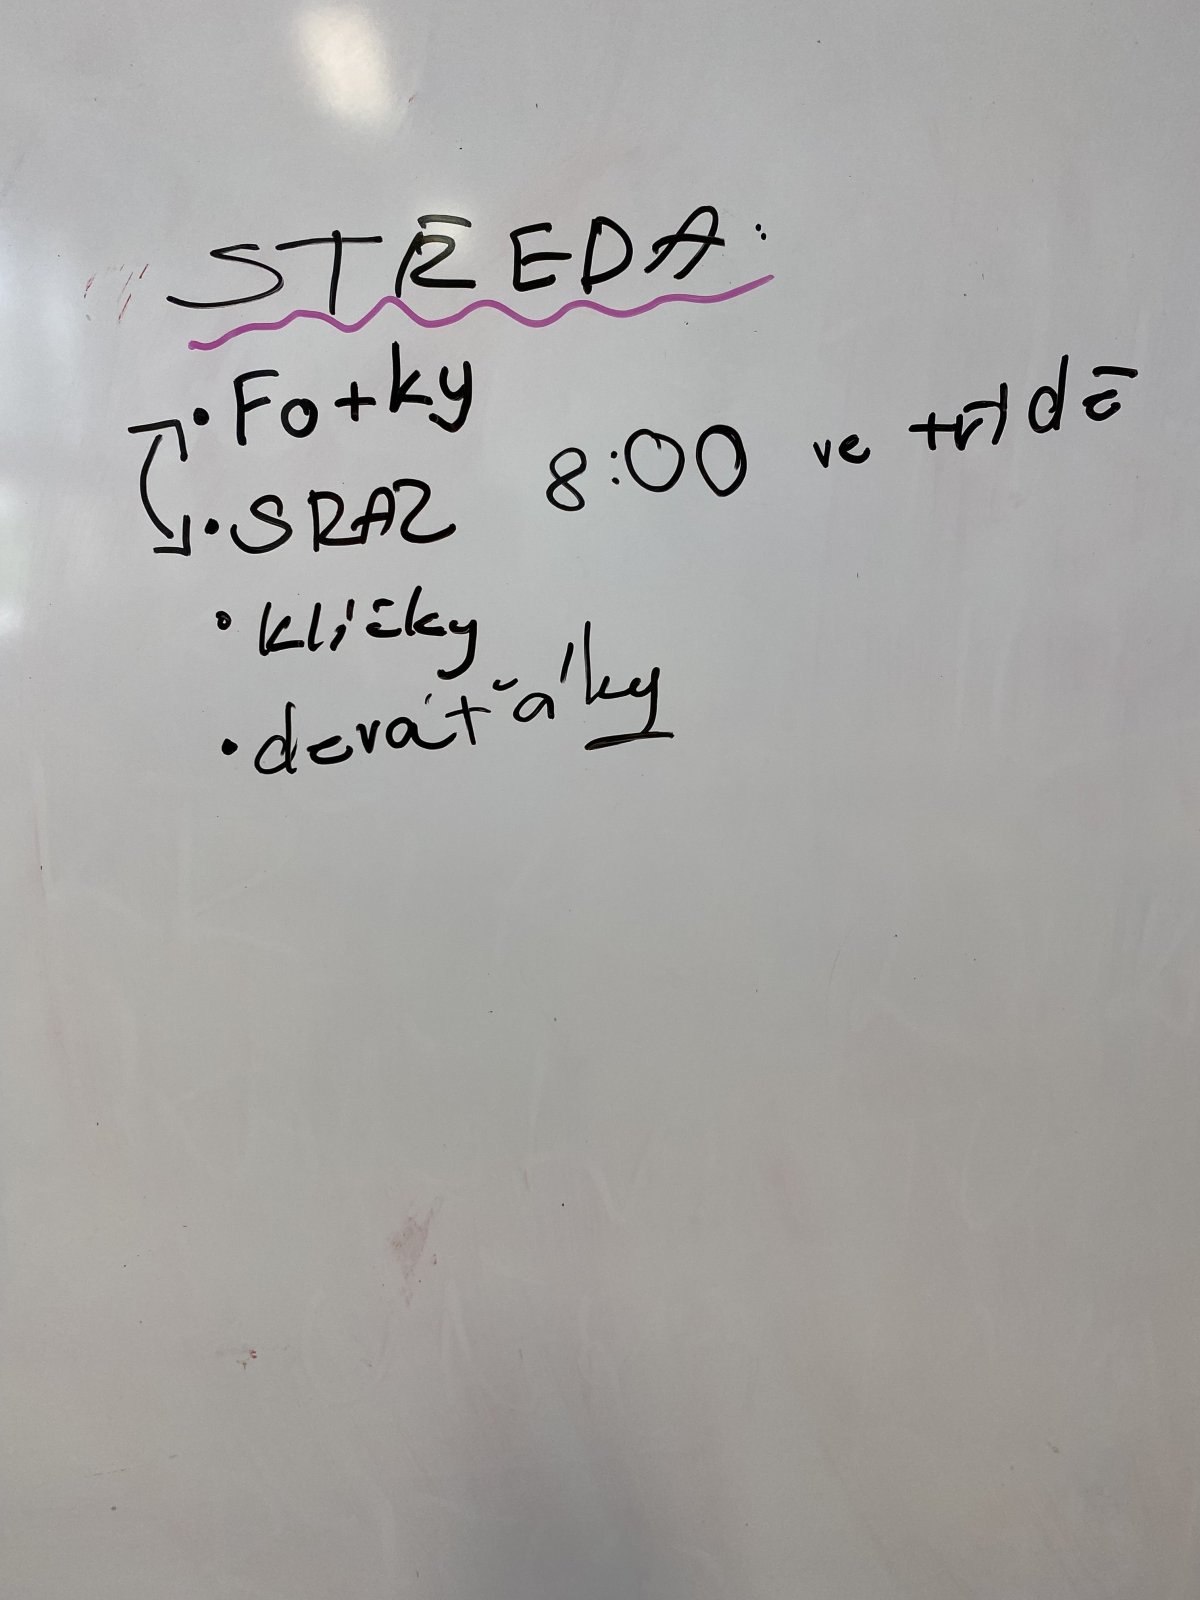 STŘEDA:
• Fotky
• SRAZ 8:00 ve třídě
• klíčky
• deváťáky